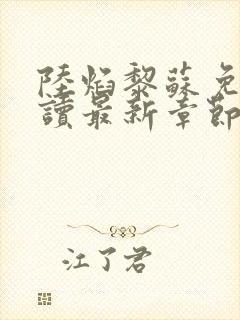 陸焰黎蘇免
讀最新章節
江了君